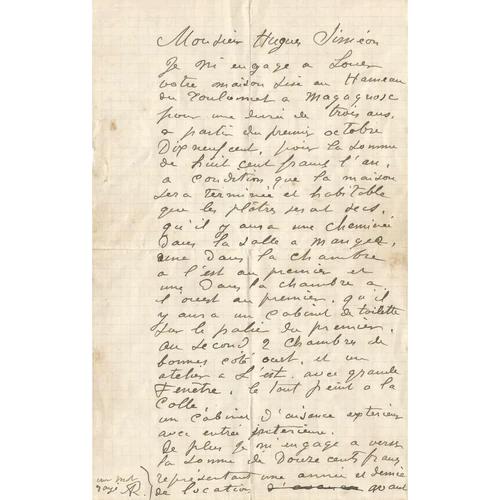 Monsieur Hugues Siméon
Je m'engage a Louer
votre maison sise au Hameau
du a Magagnosc
pour une durée de trois ans,
a partir du premier octobre
Dixneufcent, pour la somme
de huit cent francs l'an,
a condition que la maison
sera terminée et habitable
que les plâtres serat secs,
qu'il y aura une cheminée
Dans la salle a manger,
une Dans la chambre
a l'est au premier et
une Dans la chambre a
l'ouest au premier, qu'il
y aura un cabinet de toilette
sur le palié du premier,
au second 2 chambres de
bonnes côté ouest, et un
atelier a L'est. avec grande
Fenêtre, le tout peint a la
Colle,
un cabinet d'aisance exterieur
avec entrée interieure.
De plus Je m'engage a verser
la somme de Douze cents francs
représentant une année et demie
de location avant
un mot
rayé R.